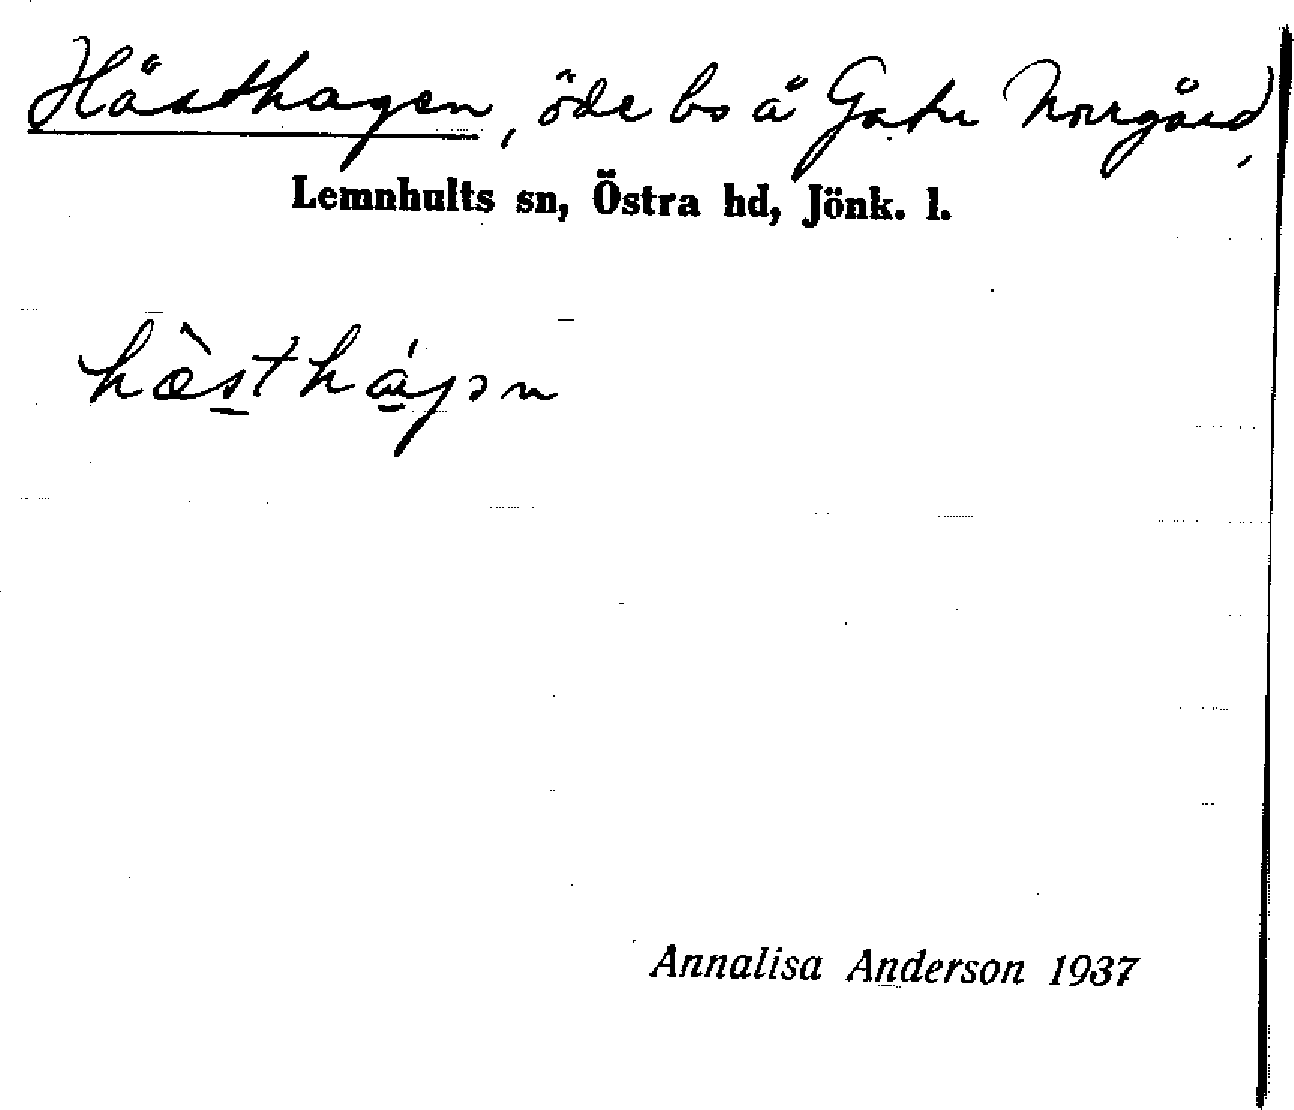 Hästhagen, öde bs å Gatu Norrgård,
Lemnhults sn, Östra hd, Jönk. l.
hæ̀sthágən
Annalisa Anderson 1937